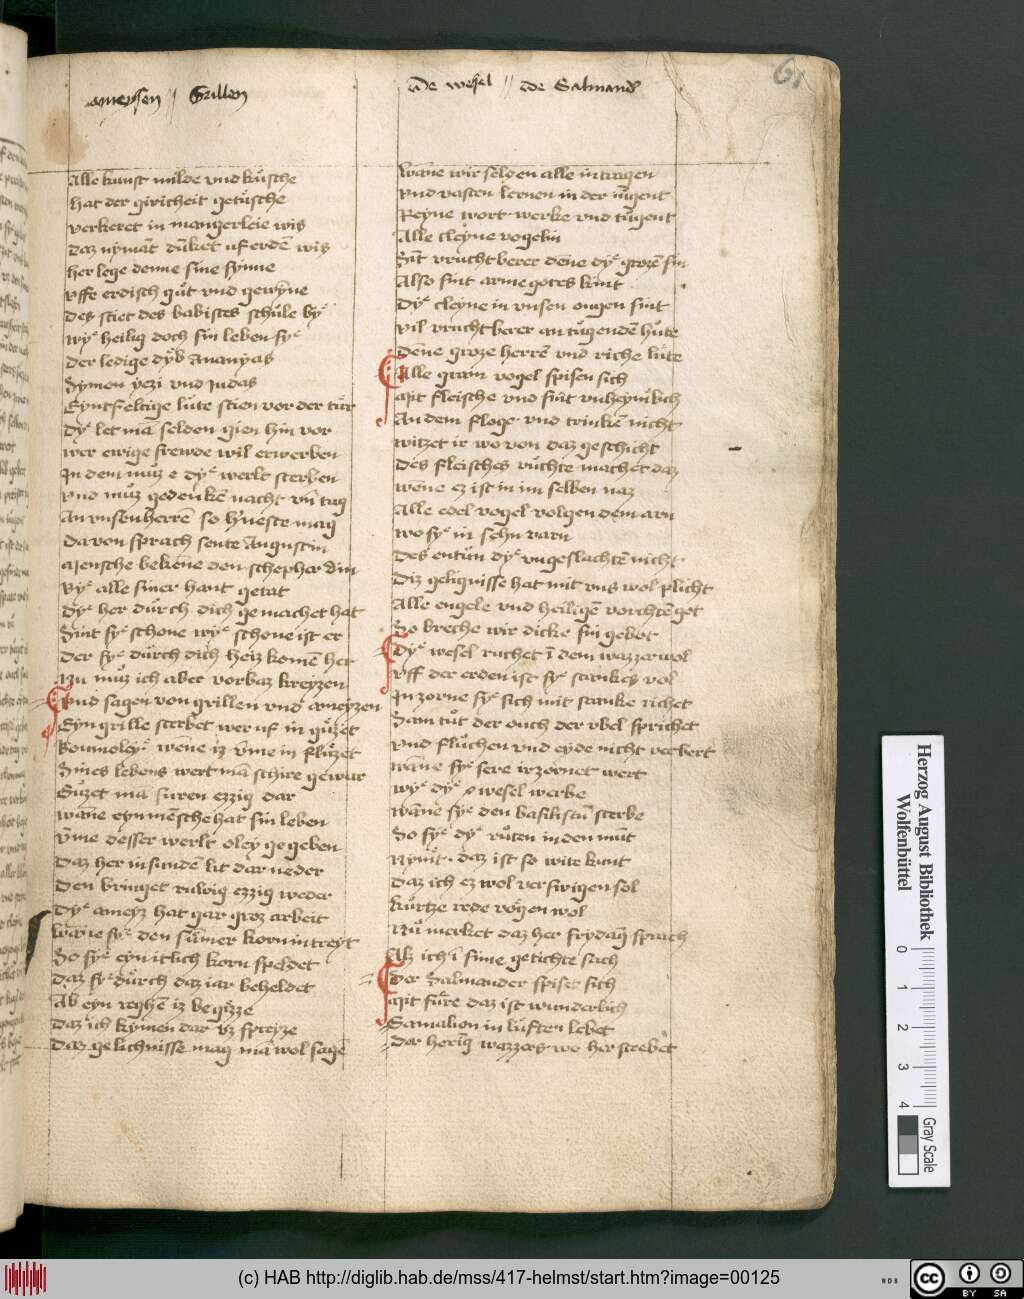 ameysen // Grillen
De wesel // De Salmand
61
Alle kunst milde vnd kuͤsche
Hat der giricheit getuͤsche
verkeret in mangerleie wis
Daz nyman duͤket uf erden wis
her lege denne sine synne
vffe erdisch guͦt vnd gewynne
Des stiet des babistes schuͦle by
wy heilig doch sin leben sy
Der ledige dyb Ananyas
Symon yezi vnd Judas
Eynueltige luͤte stien vor der tuͤr
Dy let man selden gien hin vor
wer ewige frewde wil erwerben
In dem muͦz e dy werlt sterben
vnd muͦz gedenken nacht vnd tag
An vnsen herren so her neste mag
Da von sprach sente Augustin
Mensche bekene den schepher din
By alle siner hant getat
Dy her durch dich gemachet hat
Sint sy schone wy schone ist er
Der sy durch dich heiz komen her
Nu muͦz ich aber vorbaz kreyzen
Vnd sagen von grillen vnd ameyzen
Eyn grille sterbet wer uf in guͤzet
Boumoley wene iz vme in fluͤzet
Sines lebens wert man schire gewar
Guͤzet man suren ezzig dar
wanne eyn mensche hat sin leben
vme desser werlt oley gegeben
Daz her in sunden lit dar neder
Den bringet ruwig ezzig weder
Dy ameyz hat gar groz arbeit
wanne sy den sumer korn in treyt
So sy eyn itlich korn speldet
Daz sy durch daz iar beheldet
Ab eyn reghen iz begizze
Daz ich kymen dar vz spryze
Daz gelichnisse mag man wol sagen
wanne wir selden alle in tragen
vnd vasten lernen in der iugent
Reyne wort werke vnd tugent
Alle cleyne vogelin
Sint vruchtberer denne dy grozen sin
Also sint arme gotes kint
Dy cleyne in vnsen ougen sint
vil vruchtberer an tugenden huͤte
Denne groze herren vnd riche luͤte
Alle gram vogel spisen sich
Mit fleische vnd sint vnheymlich
An dem floge vnd trinken nicht
witzet ir wo von daz geschicht
Des fleisches vuͤchte machet daz
wene ez ist in im selben naz
Alle edel vogel volgen dem arn
wo sy in sehn varn
Des entuͦn dy vngeslachten nicht
Diz gelignisse hat mit vns wol plicht
Alle engele vnd heiligen vorchten got
So breche wir dicke sin gebot
Dy wesel ruchet in dem wazzer wol
vff der erden ist sy stankes vol
In zorne sy sich mit stanke richet
Sam tuͦt der ouch der vbel sprichet
vnd fluͦchen vnd eyde nicht verbert
wanne sy sere irzornet wert
wy dy wesel werbe
wanne sy den basiliscum sterbe
So sy dy ruͤten in den munt
Nymt daz ist so wite kunt
Daz ich ez wol verswigen sol
kuͤrtze rede voͤgen wol
Nu merket daz her frydang sprach
Alz ich in sime getichte sach
Der Salmander spiset sich
Mit fuͤre daz ist wunderlich
Gamalion in luͤften lebet
Der hering wazzers wo her strebet
Herzog August Bibliothek
Wolfenbüttel
0 1 2 3 4
Gray Scale
(c) HAB http://diglib.hab.de/mss/417-helmst/start.htm?image=00125
WDB
cc BY SA